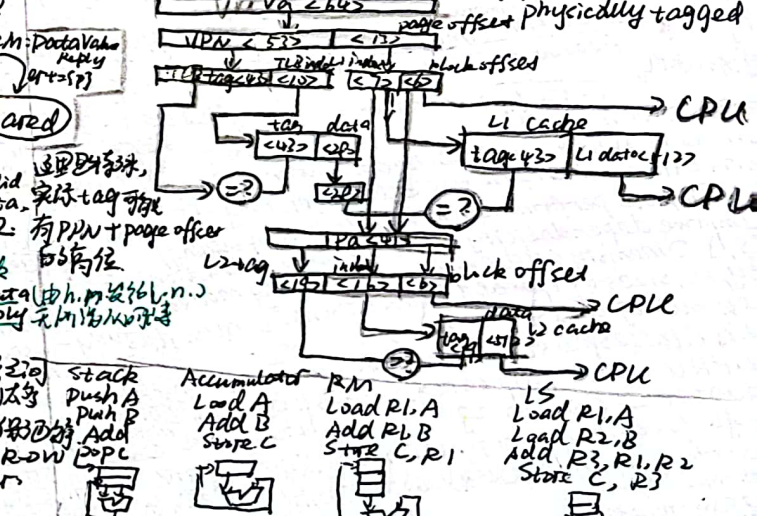 Va <64>
page offset physically tagged
VPN <53> <13>
M: Data Value
Reply
tag<43> <10> <7> <6> block offset
CPU
ared
tag data
<43> <28>
L1 cache
tag<43> L1 data<512>
=?
<28>
=?
CPU
实际tag可能
有PPN+page offset
的高位
Pa <41>
L2 tag index block offset
<19> <16> <6>
CPU
data
tag L2 cache
=?
CPU
Stack
Push A
Push B
Add
Pop C
Accumulator
Load A
Add B
Store C
RM
Load R1, A
Add R1, B
Store C, R1
LS
Load R1, A
Load R2, B
Add R3, R1, R2
Store C, R3